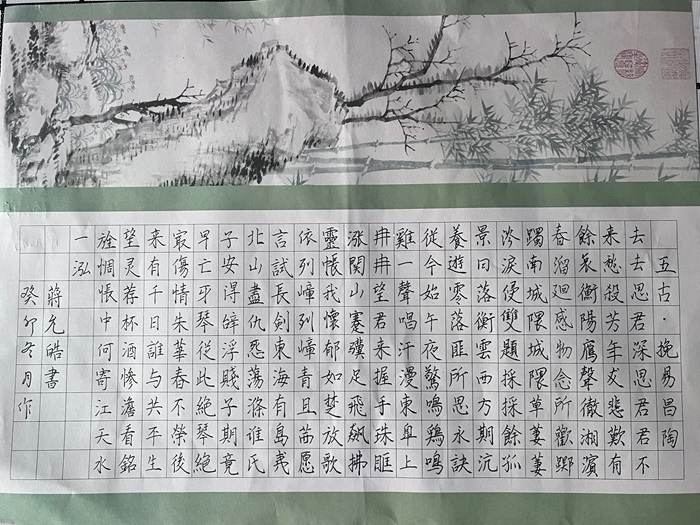 五古·挽易昌陶
去去思君深思君君不
来愁殺芳年友悲歎有
餘哀衡陽鴈聲徹湘濱
春溜廻感物念所歡踯
躅南城隈城隈草萋萋
涔淚侵雙題採採餘孤
景日落衡雲西方期沆
養遊零落匪所思永訣
從今始午夜驚鳴鷄鳴
雞一聲唱汗漫東皐上
冉冉望君来握手珠眶
漲関山蹇驥足飛飙拂
靈帳我懷郁如楚放歌
依列嶂列嶂青且茜愿
言試長劍東海有島夷
北山盡仇怨蕩滌谁氏
子安得辞浮賤子期竟
早亡牙琴從此絶琴絶
最傷情朱華春不榮後
来有千日誰与共平生
望灵荐杯酒惨澹看銘
旌惆悵中何寄江天水
一泓
蔣允皓書
癸卯冬月作